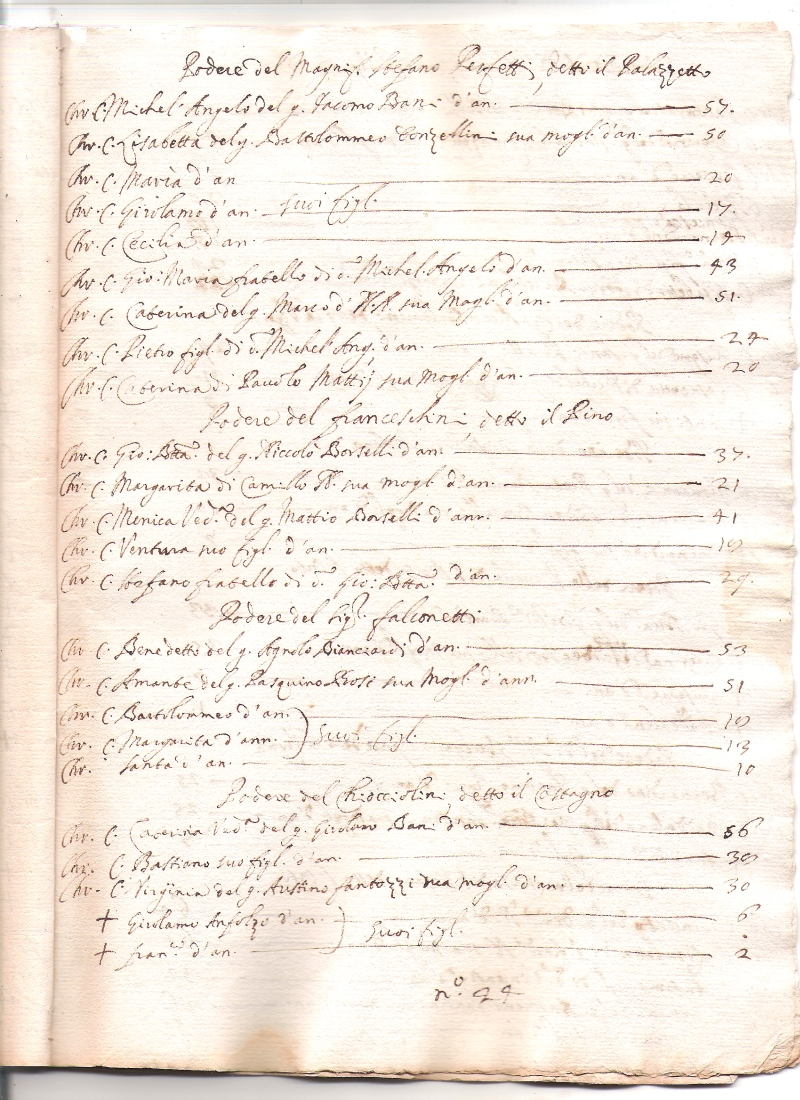 Podere del Magnif. Stefano Perfetti, detto il Palazzetto
Chr. C. Michel' Angelo del q. Iacomo Bani d'an. 57.
Chr. C. Lisabetta del q. Bartolommeo sua mogl. d'an. 50
Chr. C. Maria d'an 20
Chr. C. Girolamo d'an. suoi figl. 17.
Chr. C. Cecilia d'an. 14
Chr. C. Gio: Maria fratello di d.º Michel. Angelo d'an. 43
Chr. C. Caterina del q. Marco d' sua Mogl. d'an. 51.
Chr. C. Pietro figl. di d.º Michel' Ang. d'an. 24
Chr. C. Caterina di Pavolo Mattij sua Mogl. d'an. 20
Podere del Franceschini, detto il Pino
Chr. C. Gio: Btta. del q. Niccolò Borselli d'an. 37.
Chr. C. Margarita di Camillo N. sua mogl. d'an. 21
Chr. C. Menica Ved.ª del q. Mattio Borselli d'ann. 41
Chr. C. Ventura suo figl. d'an. 19
Chr. C. Stefano fratello di d.º Gio: Btta. d'an. 29.
Podere del Sig.r Falconetti
Chr. C. Benedetto del q. Agnolo Bianciardi d'an. 53
Chr. C. Amante del q. Pasquino Rosi sua Mogl. d'ann. 51
Chr. C. Bartolommeo d'an. 19
Chr. C. Margarita d'ann. suoi figl. 13
Chr. Santa d'an. 10
Podere del Chiocciolini, detto il Castagno
Chr. C. Caterina Ved.ª del q. Girolamo Bani d'an. 56
Chr. C. Bastiano suo figl. d'an. 39
Chr. C. Virginia del q. Austino Santozzi sua mogl. d'an. 30
+ Girolamo Ansolzo d'an. 6
+ Fran.co d'an. suoi figl. 2
n.º 24